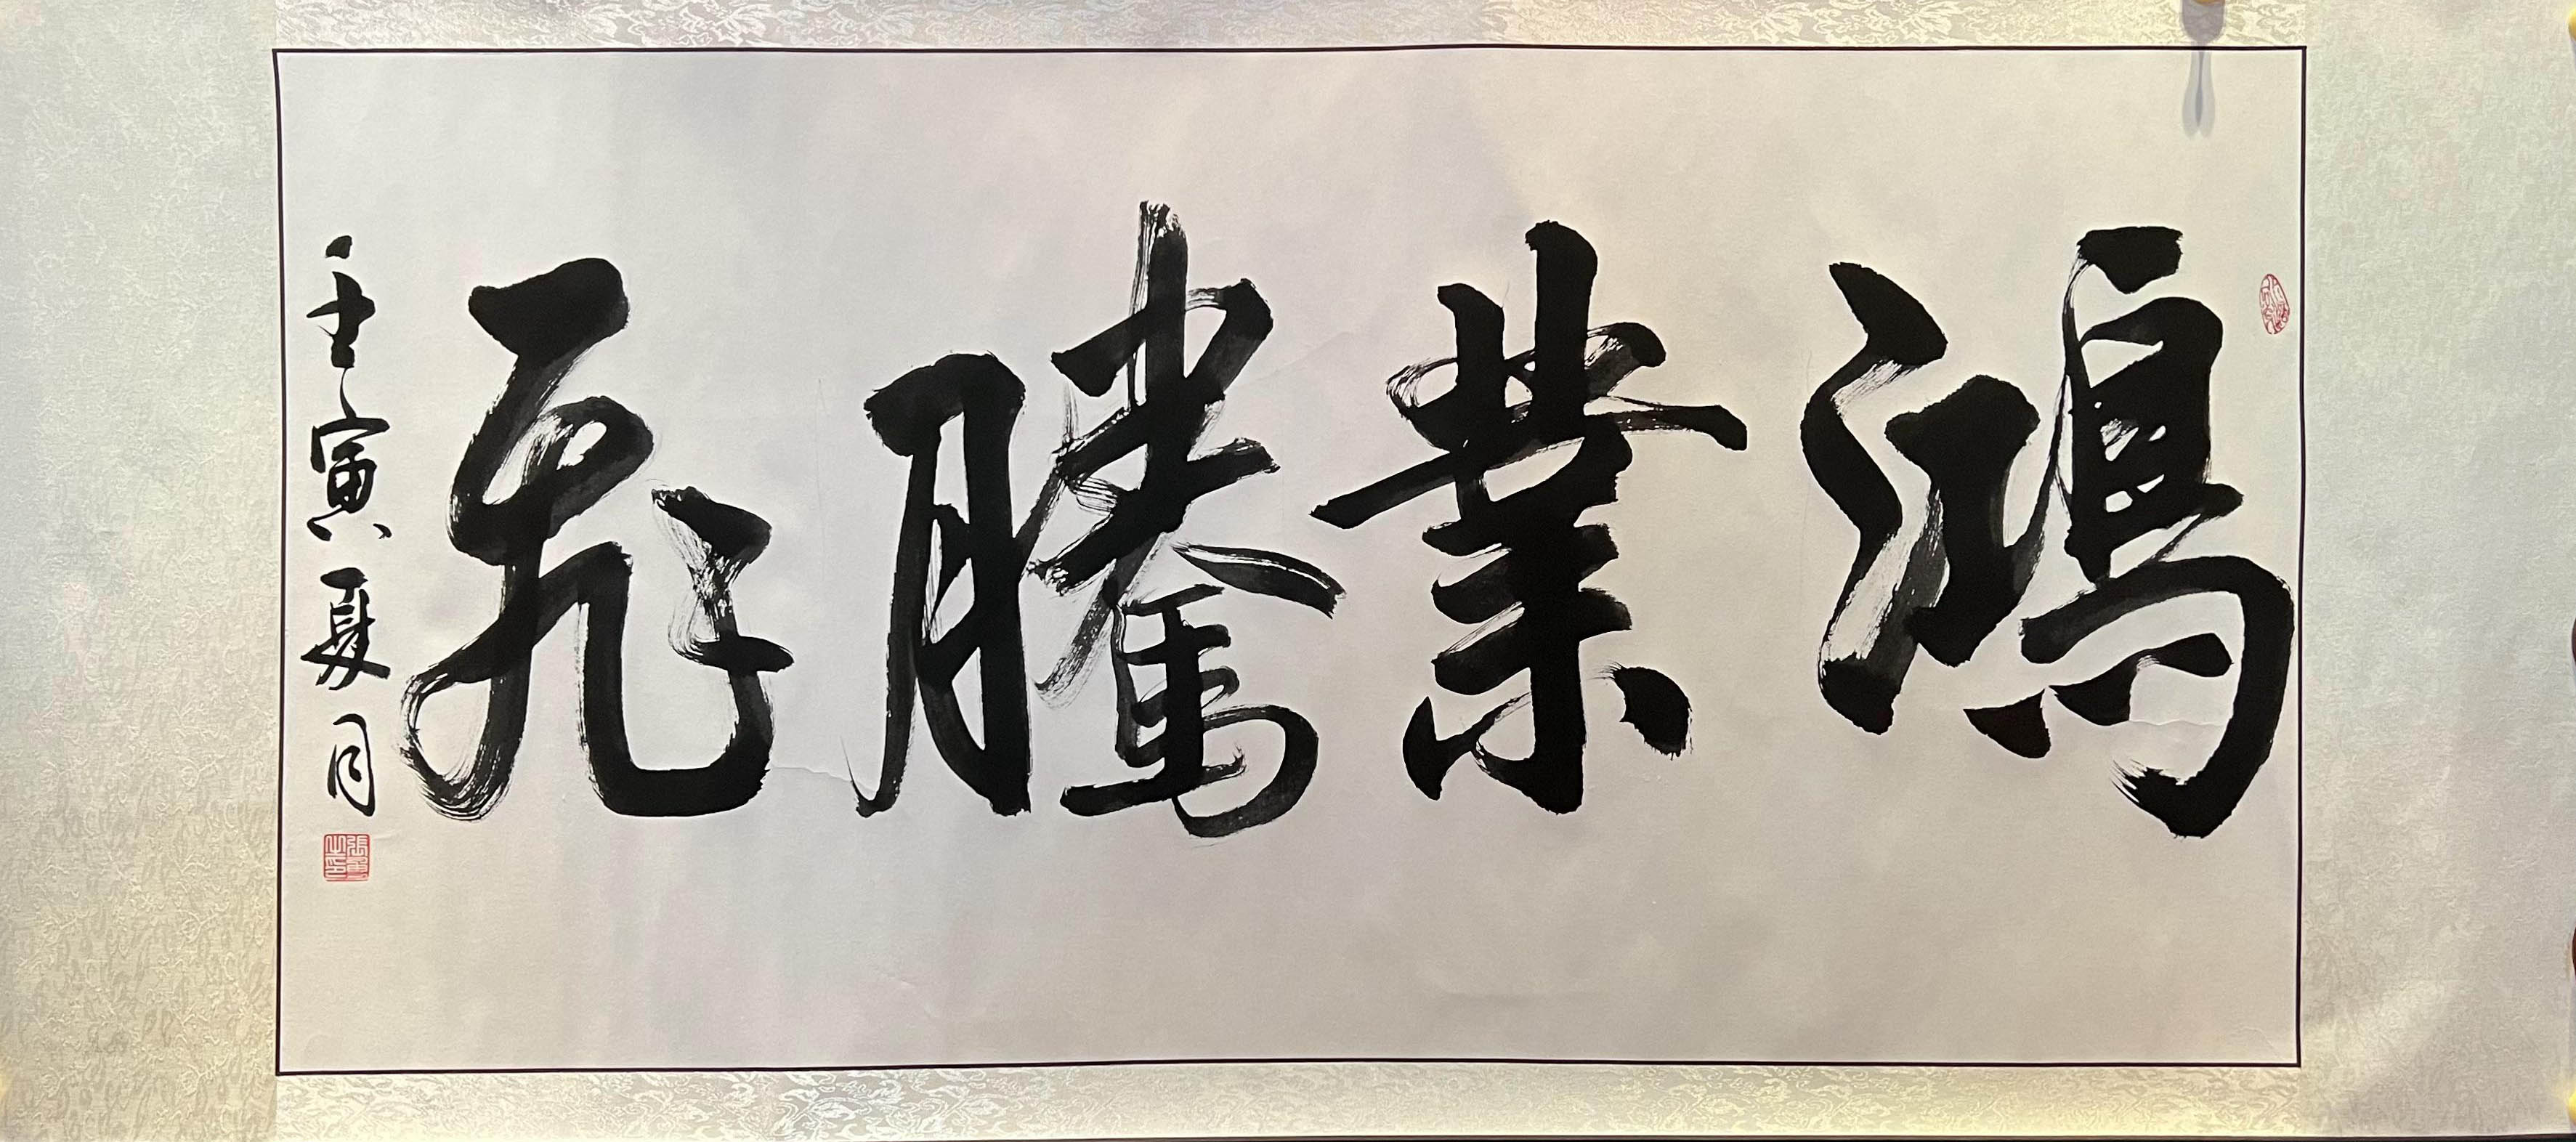 鴻業騰飛
壬寅夏月